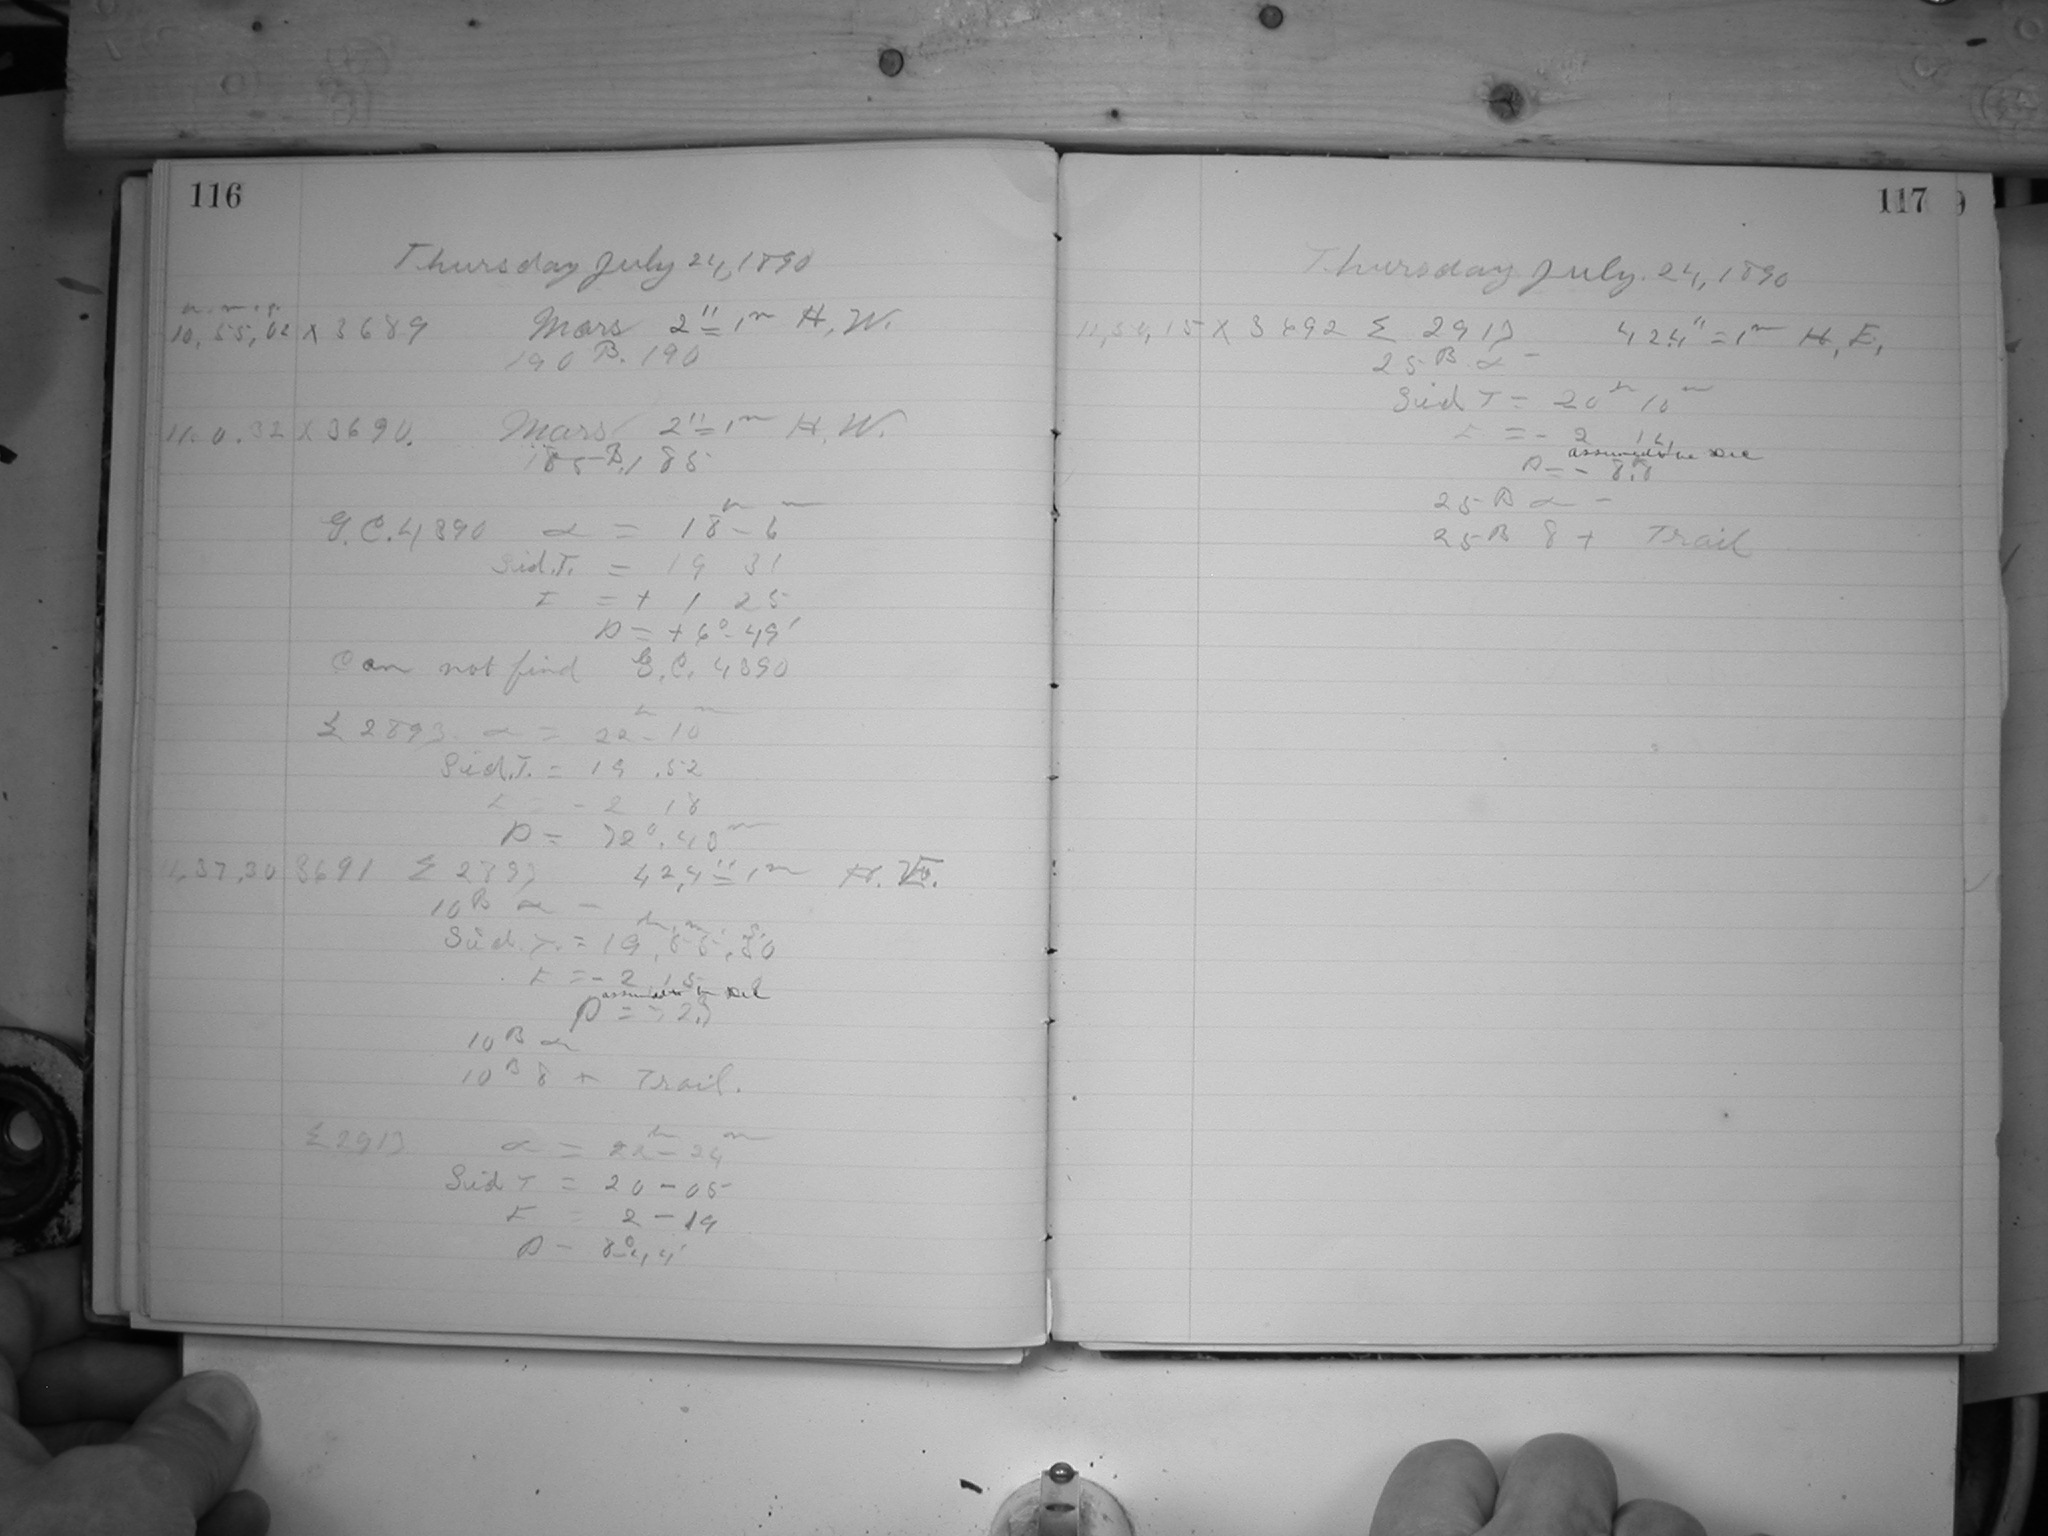 116
Thursday July 24, 1890
h. m. s.
10,55,02 X 3689 Mars 2"=1m H, W.
190 B. 190
11.0.32 X 3690. Mars 2"=1m H, W.
185 B. 185
G.C. 4390 α = 18h-6m
Sid.T. = 19 31
t = + 1 25
D = + 6°-49'
Can not find G.C. 4390
Σ 2893. α = 22h-10m
Sid.T. = 19.52
t - 2 18
D = 72°.40m
11,37,30 3691 Σ 2893 42,4"=1m H. E.
10 B α -
Sid. T. = 19h,55m,50s
t = - 2,15
assumed to be Dec
D =
10 B α
10 B δ + Trail.
Σ 2913 α = 22h-24m
Sid T = 20-05
t = 2-19
D -
117
Thursday July. 24, 1890
11,54,15 X 3692 Σ 2913 42.4"=1m H, E,
25 B α -
Sid T = 20h 10m
t = - 2 14
assumed to be Dec
D = - 8.8
25 B α -
25 B δ + Trail